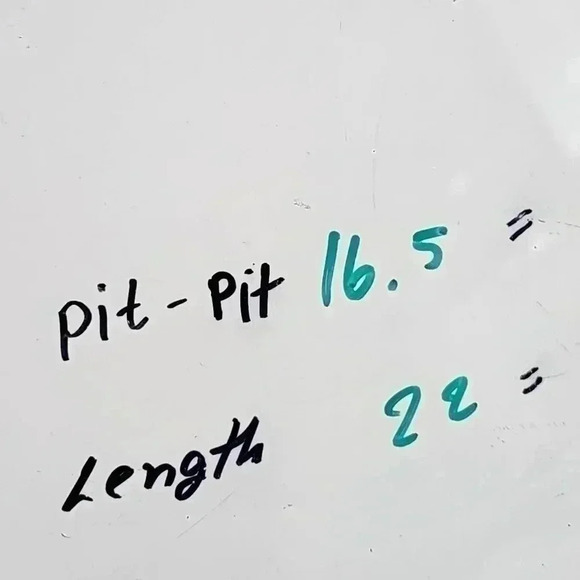 pit - Pit 16.5 "
Length 22 "